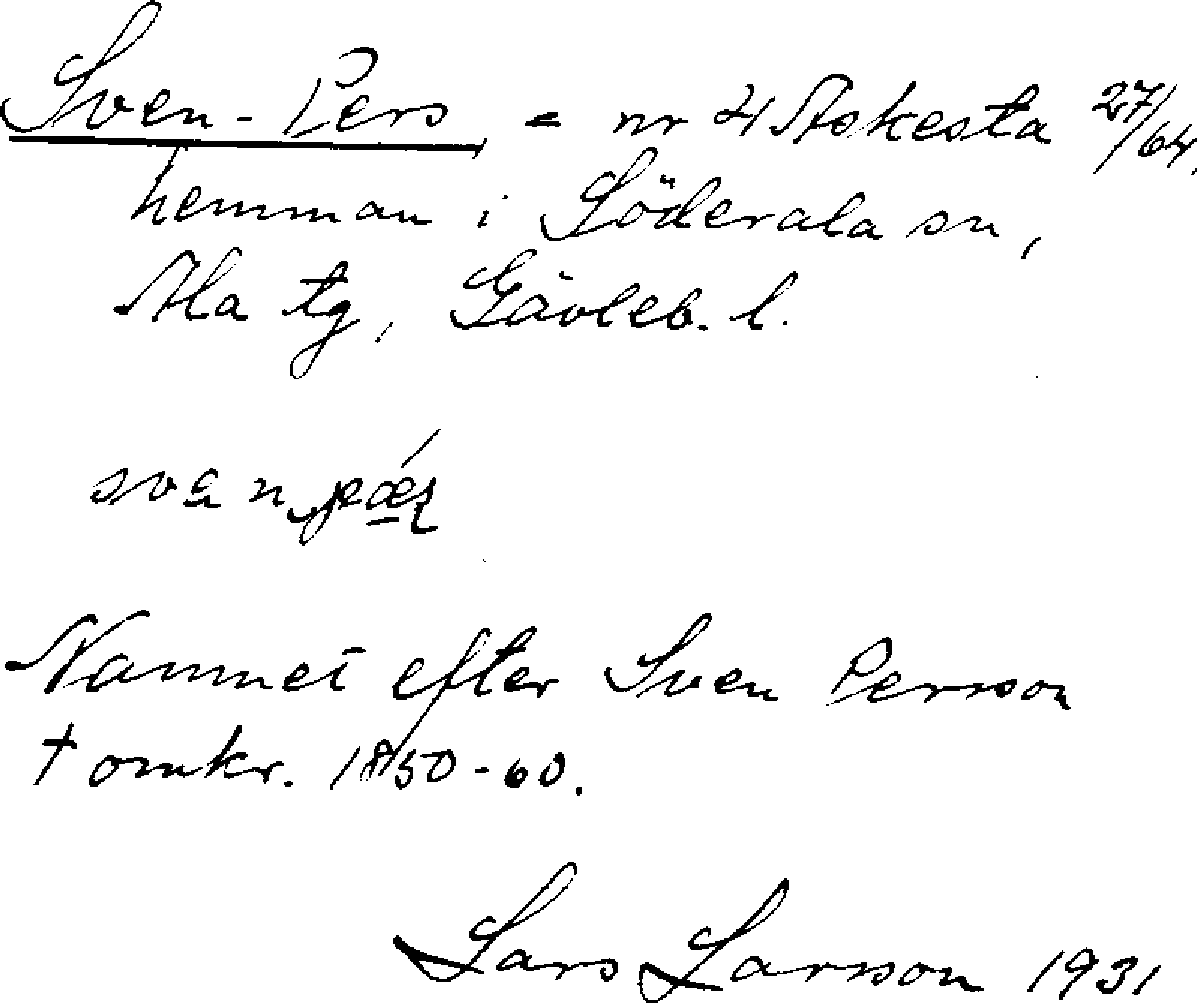 Sven-Pers, = nr 4 Askesta 27/64,
hemman i Söderala sn,
Ala tg, Gävleb. l.
Namnet efter Sven Persson
† omkr. 1850-60.
Lars Larsson 1931